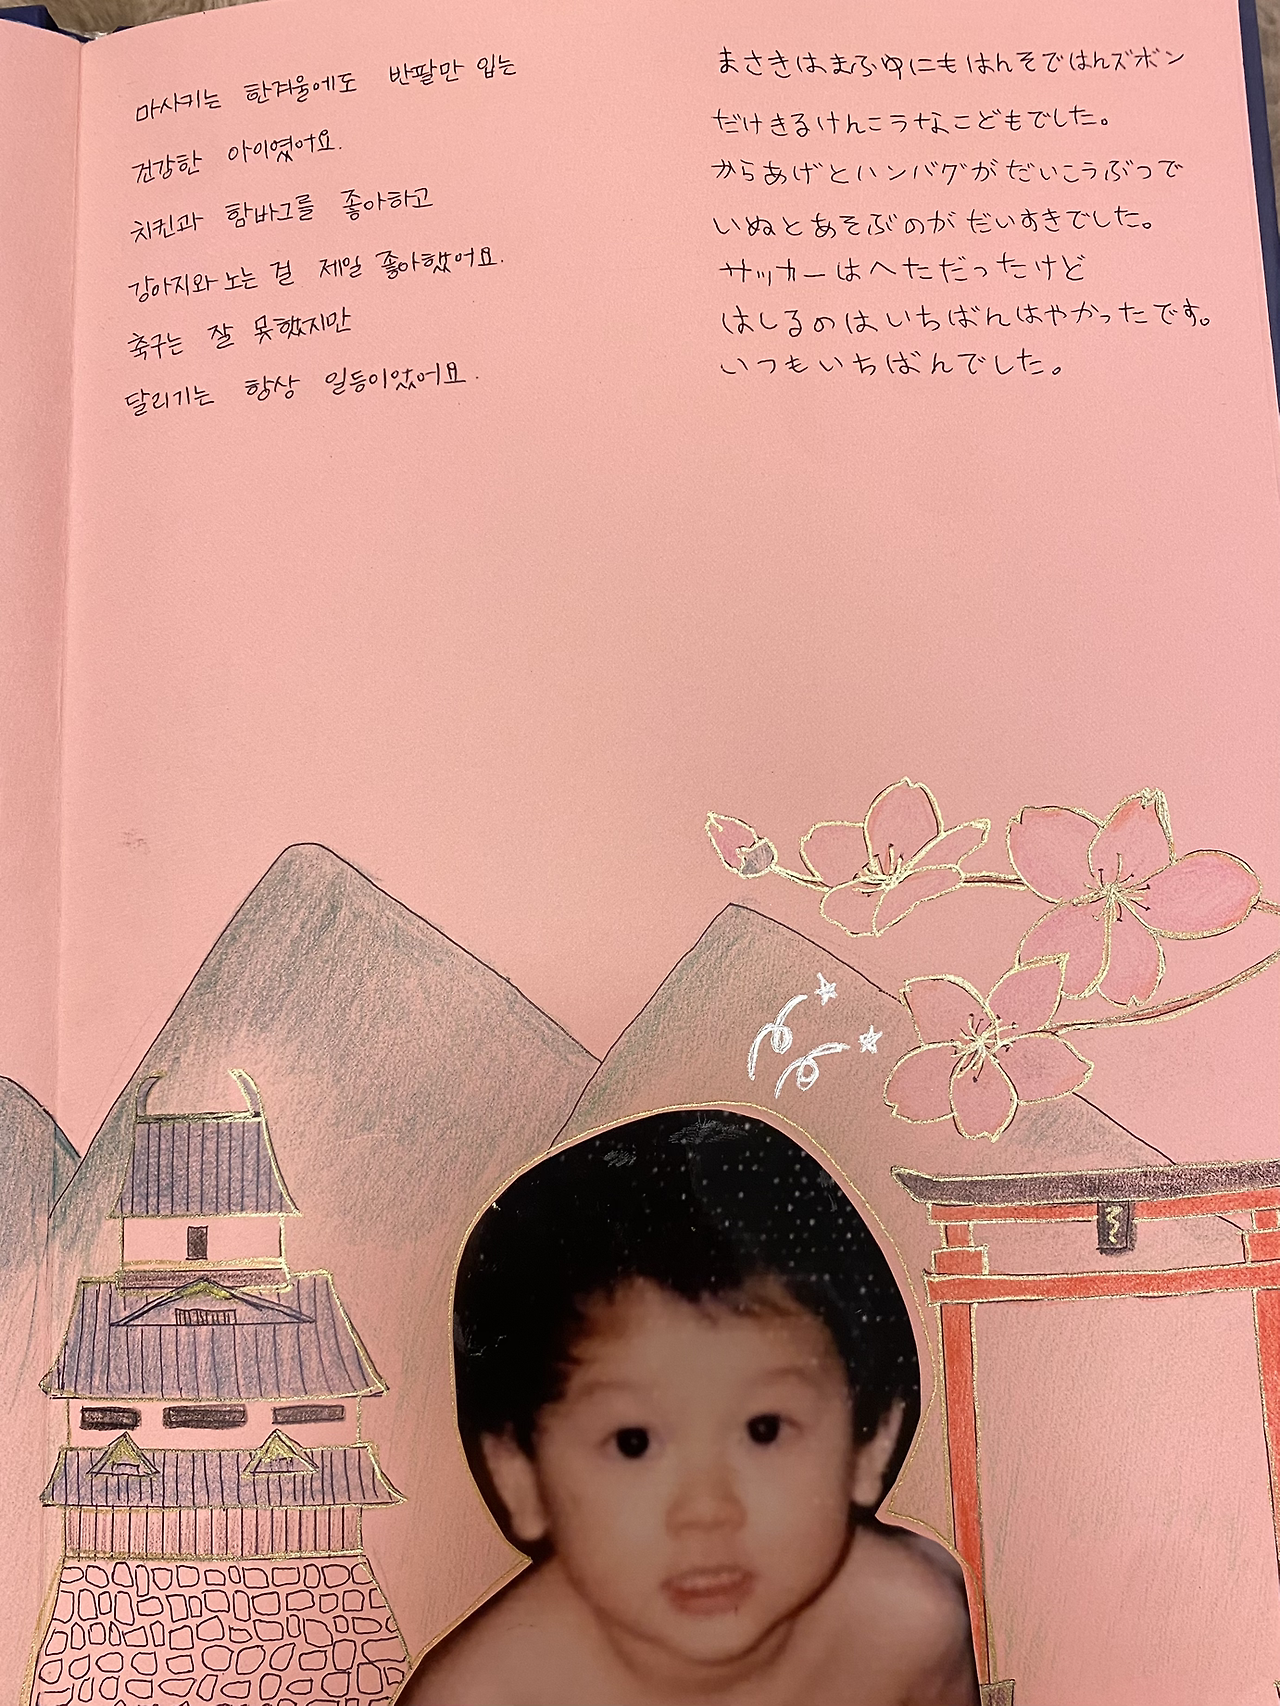 마사키는 한겨울에도 반팔만 입는
건강한 아이였어요.
치킨과 함바그를 좋아하고
강아지와 노는 걸 제일 좋아했어요.
축구는 잘 못했지만
달리기는 항상 일등이었어요.
まさきはまふゆにもはんそではんズボン
だけきるけんこうなこどもでした。
からあげとハンバグがだいこうぶつで
いぬとあそぶのがだいすきでした。
サッカーはへただったけど
はしるのはいちばんはやかったです。
いつもいちばんでした。